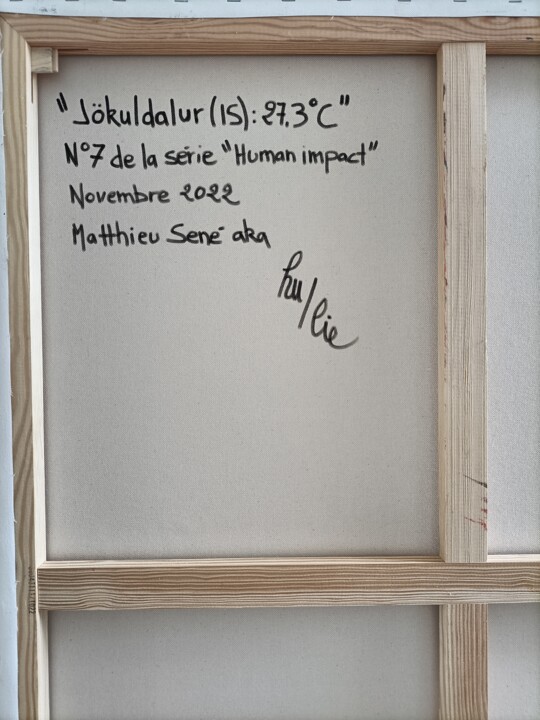 "Jökuldalur (IS): 27,3°C"
N°7 de la série "Human impact"
Novembre 2022
Matthieu Sené aka
hu/lie